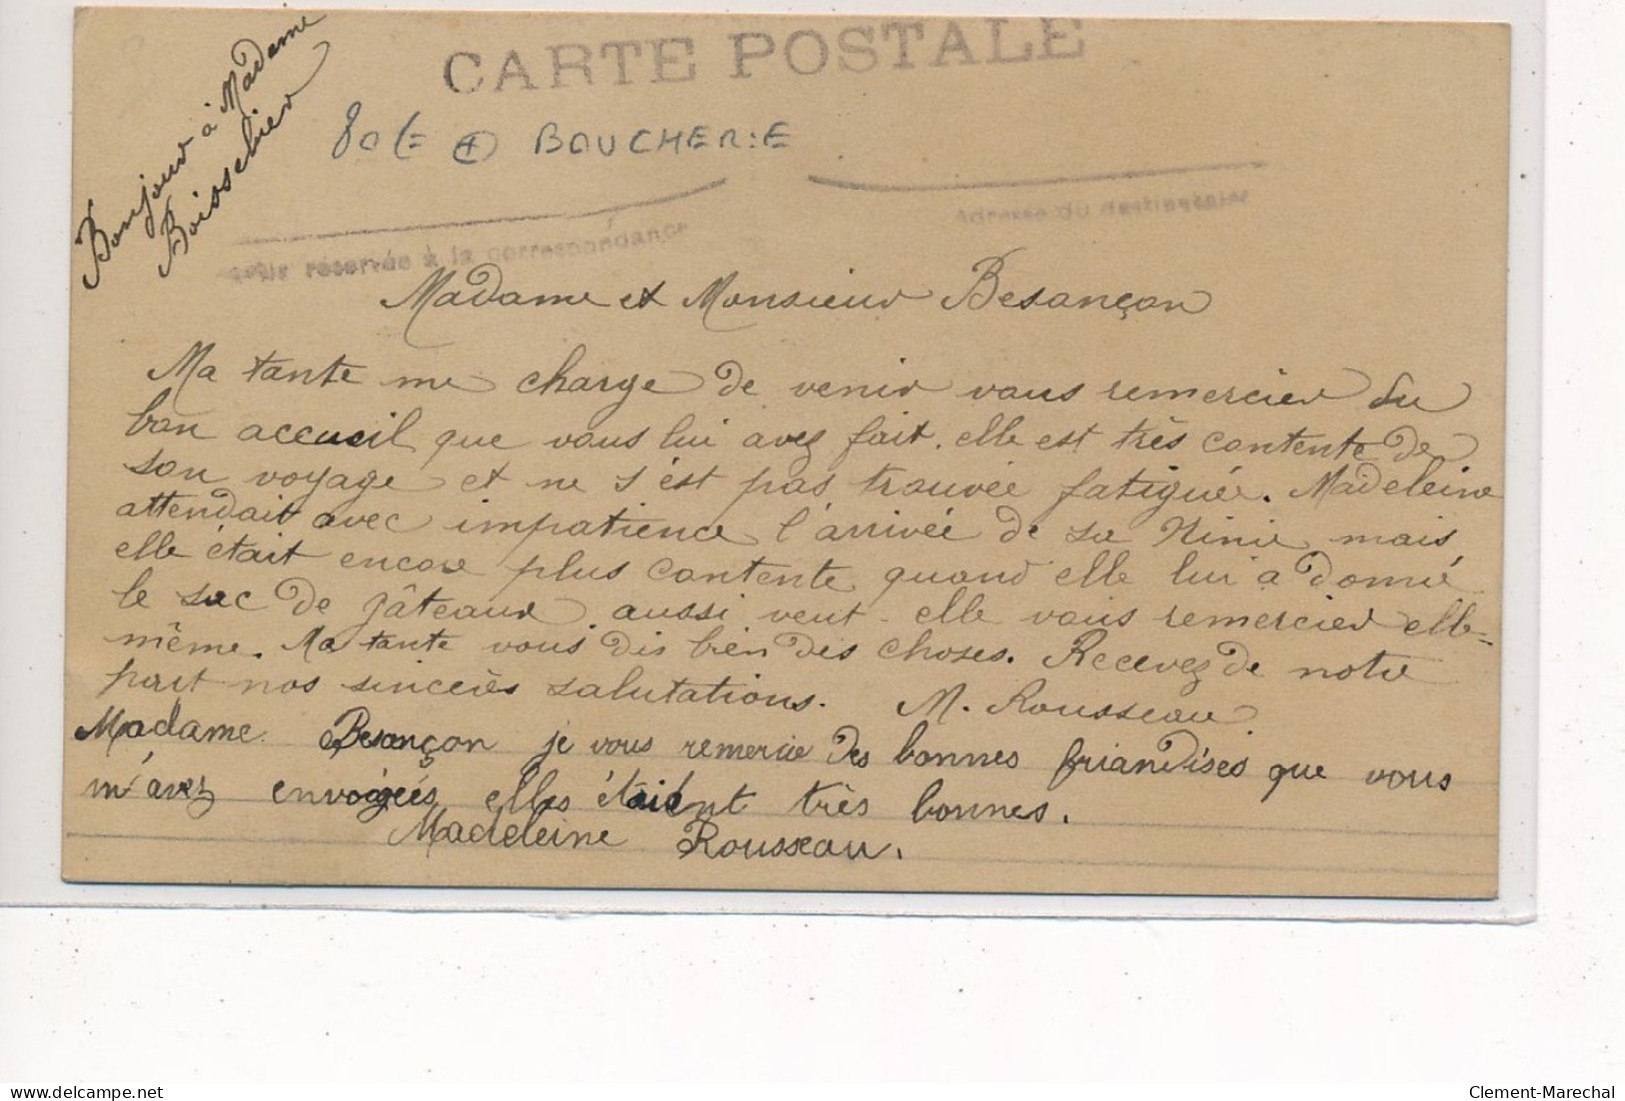 CARTE POSTALE
Bonjour à Madame
Boisselier
80€ BOUCHERIE
réservée à la correspondance
Adresse du destinataire
Madame et Monsieur Besançon
Ma tante me charge de venir vous remercier du
bon accueil que vous lui avez fait. elle est très contente de
son voyage et ne s'est pas trouvée fatiguée. Madeleine
attendait avec impatience l'arrivée de sa Ninie mais
elle était encore plus contente quand elle lui a donné
le sac de gâteaux aussi veut-elle vous remercier elle=
même. Ma tante vous dis bien des choses. Recevez de notre
part nos sincères salutations. M. Rousseau
Madame Besançon je vous remercie des bonnes friandises que vous
m'avez envoyées elles étaient très bonnes.
Madeleine Rousseau.
Clement-Marechal
https://www.delcampe.net